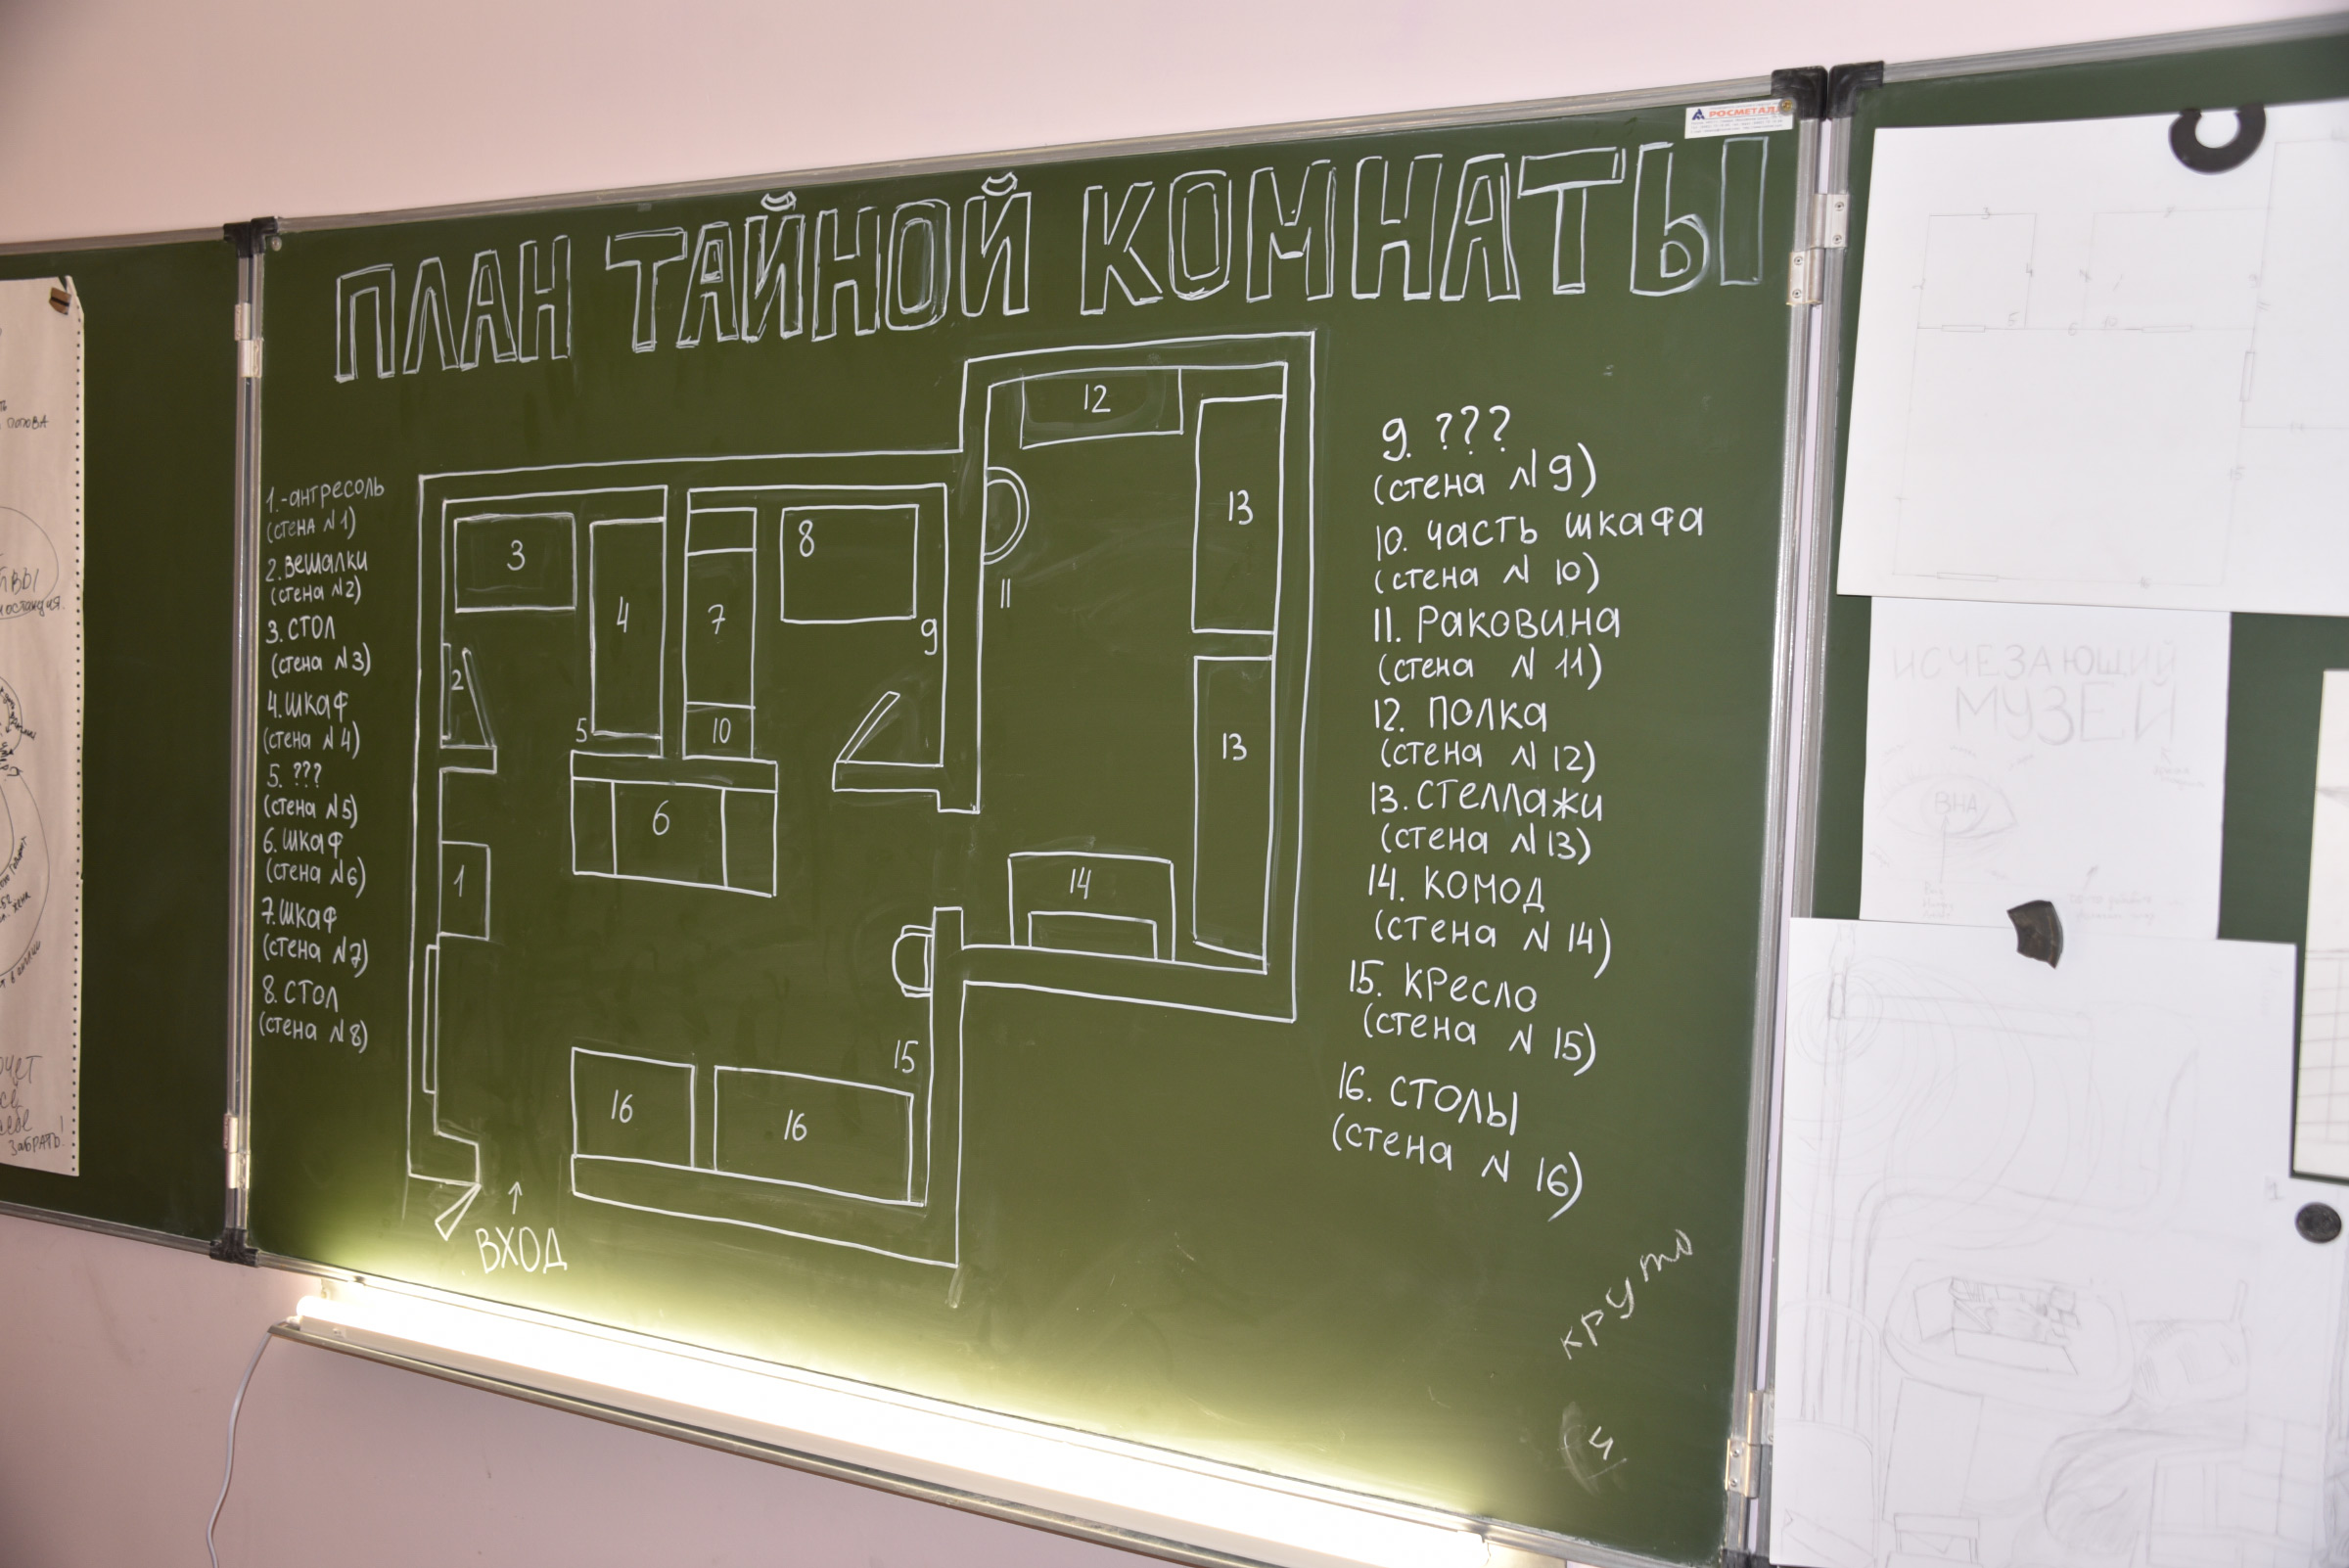 ПЛАН ТАЙНОЙ КОМНАТЫ
РОСМЕТАЛЛ
1.-антресоль
(стена №1)
2. вешалки
(стена №2)
3. стол
(стена №3)
4. шкаф
(стена №4)
5. ???
(стена №5)
6. шкаф
(стена №6)
7. шкаф
(стена №7)
8. стол
(стена №8)
9. ???
(стена №9)
10. часть шкафа
(стена № 10)
11. Раковина
(стена № 11)
12. полка
(стена №12)
13. стеллажи
(стена №13)
14. комод
(стена № 14)
15. кресло
(стена № 15)
16. столы
(стена № 16)
12
13
3
8
4
7
11
9
2
5
10
13
6
1
14
15
16
16
ВХОД
круто
Ч
ПОПОВА
ЗАБРАТЬ!
ИСЧЕЗАЮЩИЙ
МУЗЕЙ
ВНА